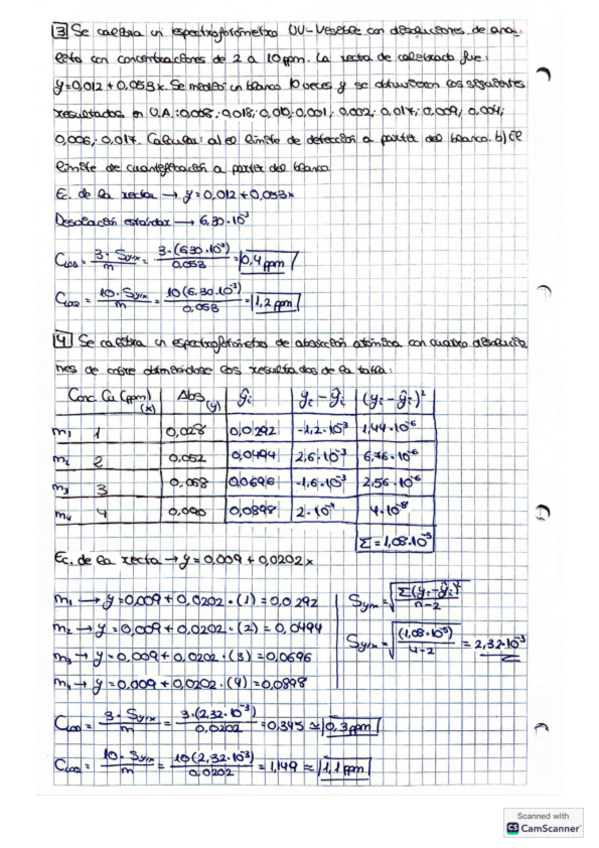 3 Se calibra un espectrofotómetro UV-Visible con disoluciones de ana-
lito con concentraciones de 2 a 10 ppm. La recta de calibrado fue:
y=0,012+0,053x. Se medió un blanco 10 veces y se obtuvieron los siguientes
resultados en U.A.: 0,008; 0,018; 0,010; 0,001; 0,002; 0,017; 0,009; 0,004;
0,006; 0,017. Calcular: a) el límite de detección a partir del blanco. b) El
límite de cuantificación a partir del blanco.
Ec. de la recta → y=0,012+0,053x
Desviación estándar → 6,30·10⁻³
C_LOD = 3·Sy/x / m = 3·(6,30·10⁻³) / 0,053 = 0,4 ppm
C_LOQ = 10·Sy/x / m = 10(6,30·10⁻³) / 0,053 = 1,2 ppm
4 Se calibra un espectrofotómetro de absorción atómica con cuatro disolucio-
nes de cobre obteniéndose los resultados de la tabla:
Conc. Cu (ppm) (x) Abs (y) ŷi yi - ŷi (yi - ŷi)²
m₁ 1 0,028 0,0292 -1,2·10⁻³ 1,44·10⁻⁶
m₂ 2 0,052 0,0494 2,6·10⁻³ 6,76·10⁻⁶
m₃ 3 0,068 0,0696 -1,6·10⁻³ 2,56·10⁻⁶
m₄ 4 0,090 0,0898 2·10⁻⁴ 4·10⁻⁸
Σ = 1,08·10⁻⁵
Ec. de la recta → y=0,009+0,0202x
m₁ → y=0,009+0,0202·(1)=0,0292
m₂ → y=0,009+0,0202·(2)=0,0494
m₃ → y=0,009+0,0202·(3)=0,0696
m₄ → y=0,009+0,0202·(4)=0,0898
Sy/x = √(Σ(yi-ŷi)² / n-2)
Sy/x = √((1,08·10⁻⁵) / 4-2) = 2,32·10⁻³
C_LOD = 3·Sy/x / m = 3·(2,32·10⁻³) / 0,0202 = 0,345 ≈ 0,3 ppm
C_LOQ = 10·Sy/x / m = 10(2,32·10⁻³) / 0,0202 = 1,149 ≈ 1,1 ppm
Scanned with
CS CamScanner